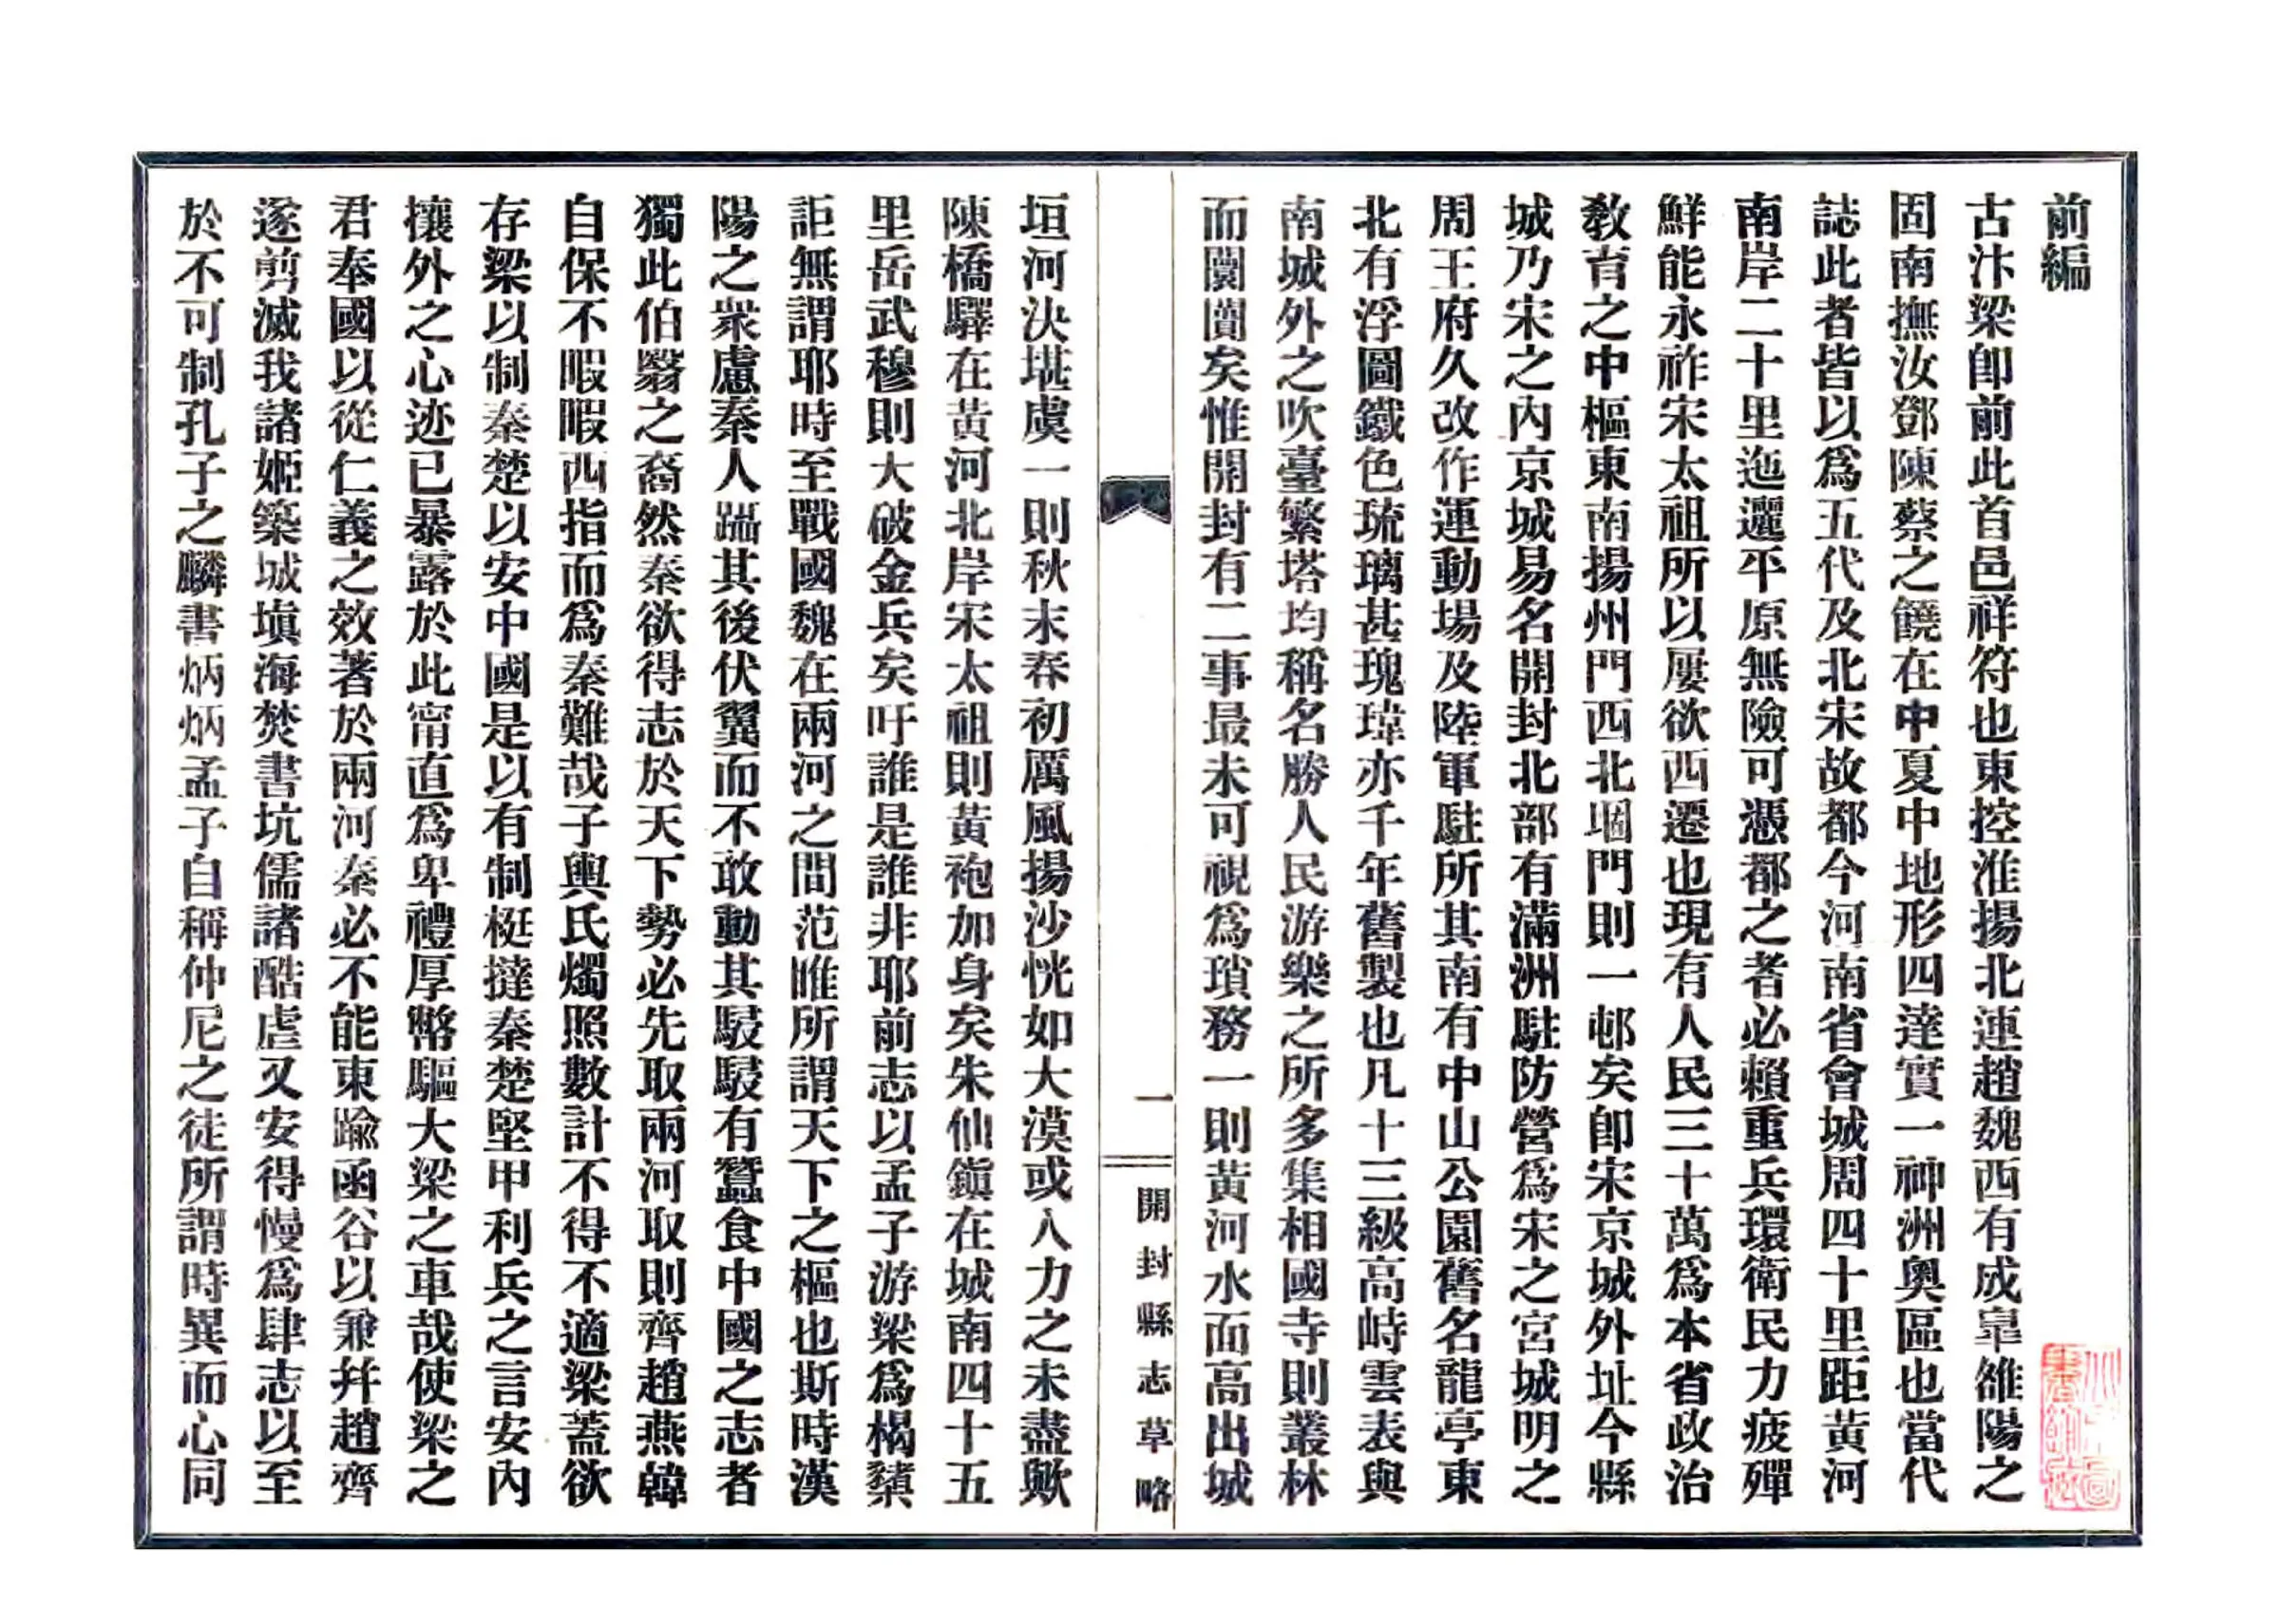 前編
古汴梁卽前此首邑祥符也東控淮揚北連趙魏西有成皐雒陽之
固南撫汝鄧陳蔡之饒在中夏中地形四達實一神洲奧區也當代
誌此者皆以爲五代及北宋故都今河南省會城周四十里距黃河
南岸二十里迤邐平原無險可憑都之者必賴重兵環衛民力疲殫
鮮能永祚宋太祖所以屢欲西遷也現有人民三十萬爲本省政治
敎育之中樞東南揚州門西北堌門則一邨矣卽宋京城外址今縣
城乃宋之內京城易名開封北部有滿洲駐防營爲宋之宮城明之
周王府久改作運動場及陸軍駐所其南有中山公園舊名龍亭東
北有浮圖鐵色琉璃甚瑰瑋亦千年舊製也凡十三級高峙雲表與
南城外之吹臺繁塔均稱名勝人民游樂之所多集相國寺則叢林
而闤闠矣惟開封有二事最未可視爲瑣務一則黃河水面高出城
垣河決堪虞一則秋末春初厲風揚沙恍如大漠或入力之未盡歟
陳橋驛在黃河北岸宋太祖則黃袍加身矣朱仙鎭在城南四十五
里岳武穆則大破金兵矣吁誰是誰非耶前志以孟子游梁爲楬櫫
詎無謂耶時至戰國魏在兩河之間范睢所謂天下之樞也斯時漢
陽之衆慮秦人躡其後伏翼而不敢動其駸駸有蠶食中國之志者
獨此伯翳之裔然秦欲得志於天下勢必先取兩河取則齊趙燕韓
自保不暇暇西指而爲秦難哉子輿氏燭照數計不得不適梁蓋欲
存梁以制秦楚以安中國是以有制梃撻秦楚堅甲利兵之言安內
攘外之心迹已暴露於此甯直爲卑禮厚幣驅大梁之車哉使梁之
君奉國以從仁義之效著於兩河秦必不能東踰函谷以兼幷趙齊
遂剪滅我諸姬築城塡海焚書坑儒諸酷虐又安得慢爲肆志以至
於不可制孔子之麟書炳炳孟子自稱仲尼之徒所謂時異而心同
一
開封縣志草略